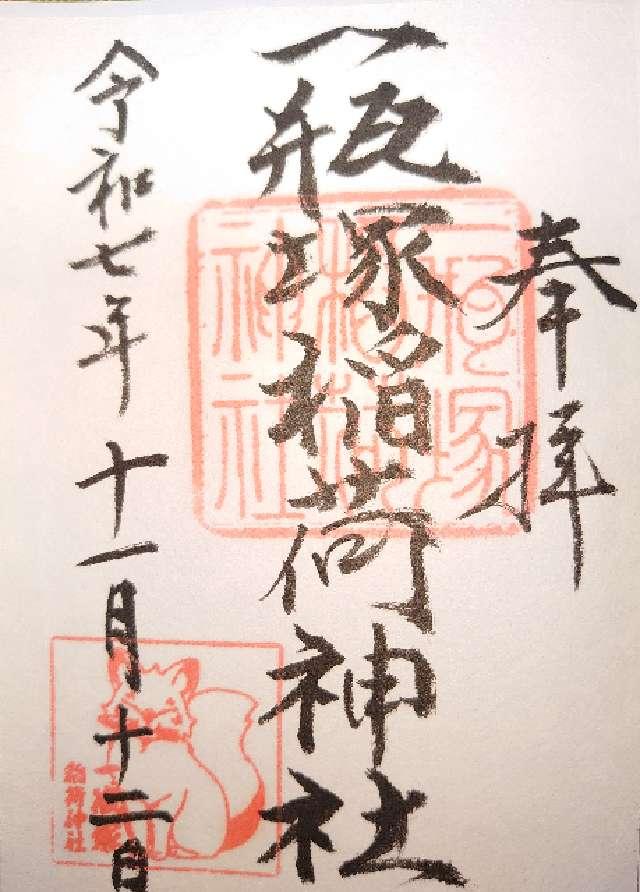 奉拝
一瓶塚稲荷神社
令和七年十一月十二日
一瓶塚稲荷神社
一瓶塚
稲荷神社